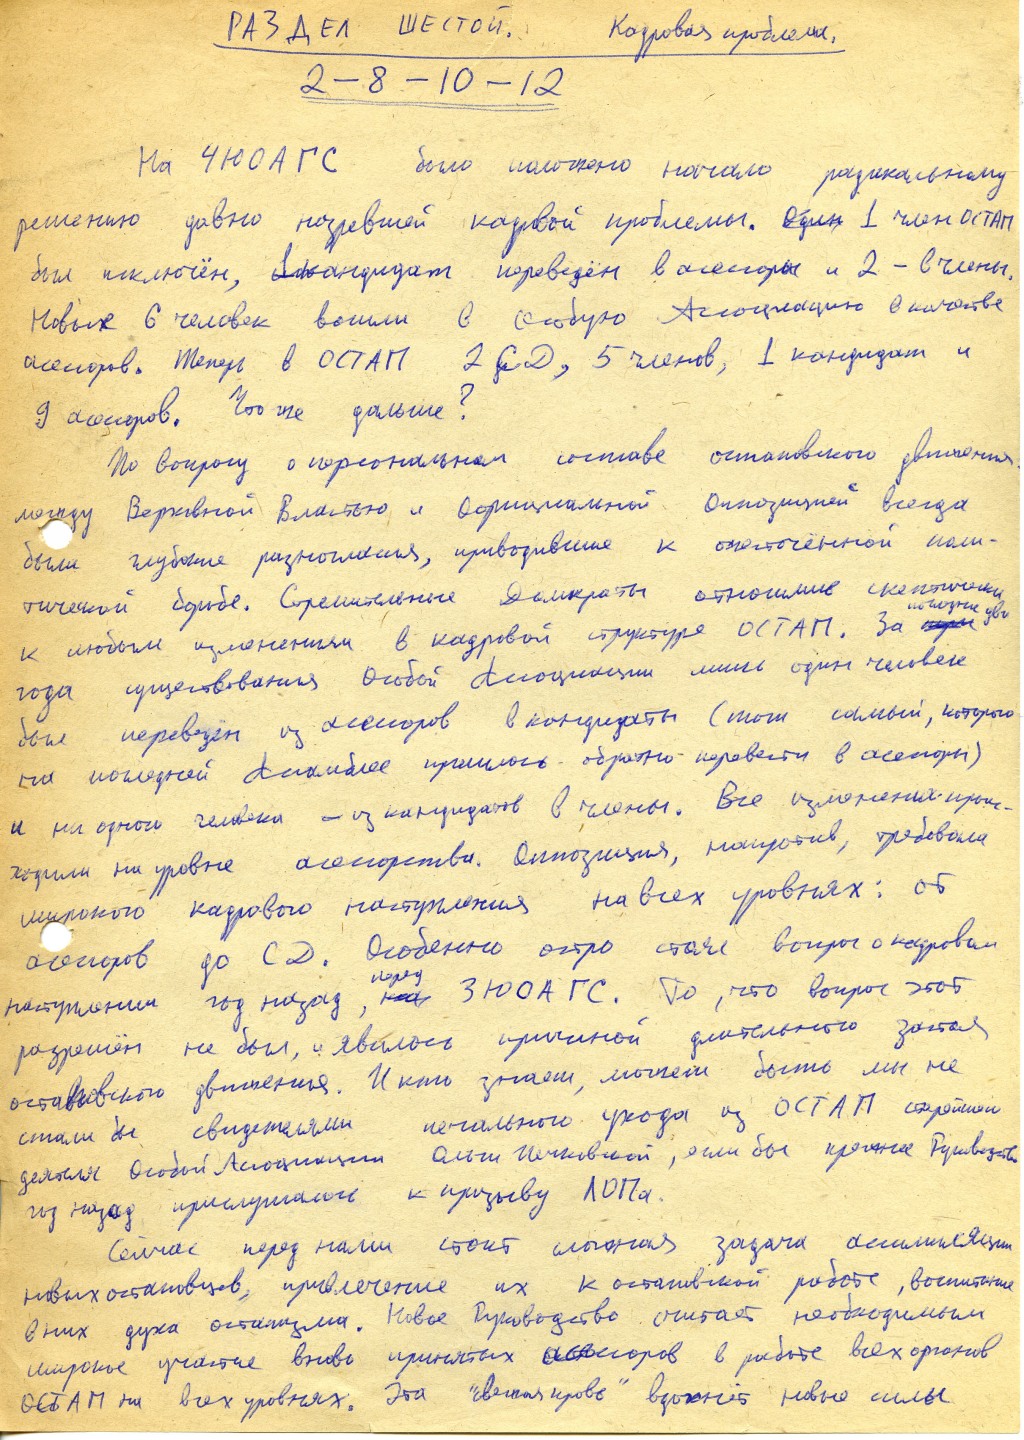 РАЗДЕЛ ШЕСТОЙ. Кадровая проблема.
2-8-10-12
На 4ЮОАГС было положено начало радикальному
решению давно назревшей кадровой проблемы. 1 член ОСТАП
был исключён, 1 кандидат переведён в асессоры и 2 - в члены.
Новых 6 человек вошли в Особую Ассоциацию в качестве
асессоров. Теперь в ОСТАП 2 СД, 5 членов, 1 кандидат и
9 асессоров. Что же дальше?
По вопросу о персональном составе остаповского движения
между Верховной Властью и Официальной Оппозицией всегда
были глубокие разногласия, приводившие к ожесточённой поли-
тической борьбе. Стремительные Демократы относились скептически
к любым изменениям в кадровой структуре ОСТАП. За последние два
года существования Особой Ассоциации лишь один человек
был переведён из асессоров в кандидаты (тот самый, которого
на последней Ассамблее пришлось обратно перевести в асессоры)
и ни одного человека - из кандидатов в члены. Все изменения проис-
ходили на уровне асессорства. Оппозиция, напротив, требовала
широкого кадрового наступления на всех уровнях: от
асессоров до СД. Особенно остро стал вопрос о кадровом
наступлении год назад, перед 3ЮОАГС. То, что вопрос этот
разрешён не был, и явилось причиной длительного застоя
остаповского движения. И кто знает, может быть мы не
стали бы свидетелями печального ухода из ОСТАП старейшего
деятеля Особой Ассоциации Ольги, если бы прежнее Руководство
год назад прислушалось к призыву ЛОПа.
Сейчас перед нами стоит сложная задача ассимиляции
новых остаповцев, привлечение их к остаповской работе, воспитание
в них духа остапизма. Новое Руководство считает необходимым
широкое участие вновь принятых асессоров в работе всех органов
ОСТАП на всех уровнях. Эта "свежая кровь" вдохнёт новые силы